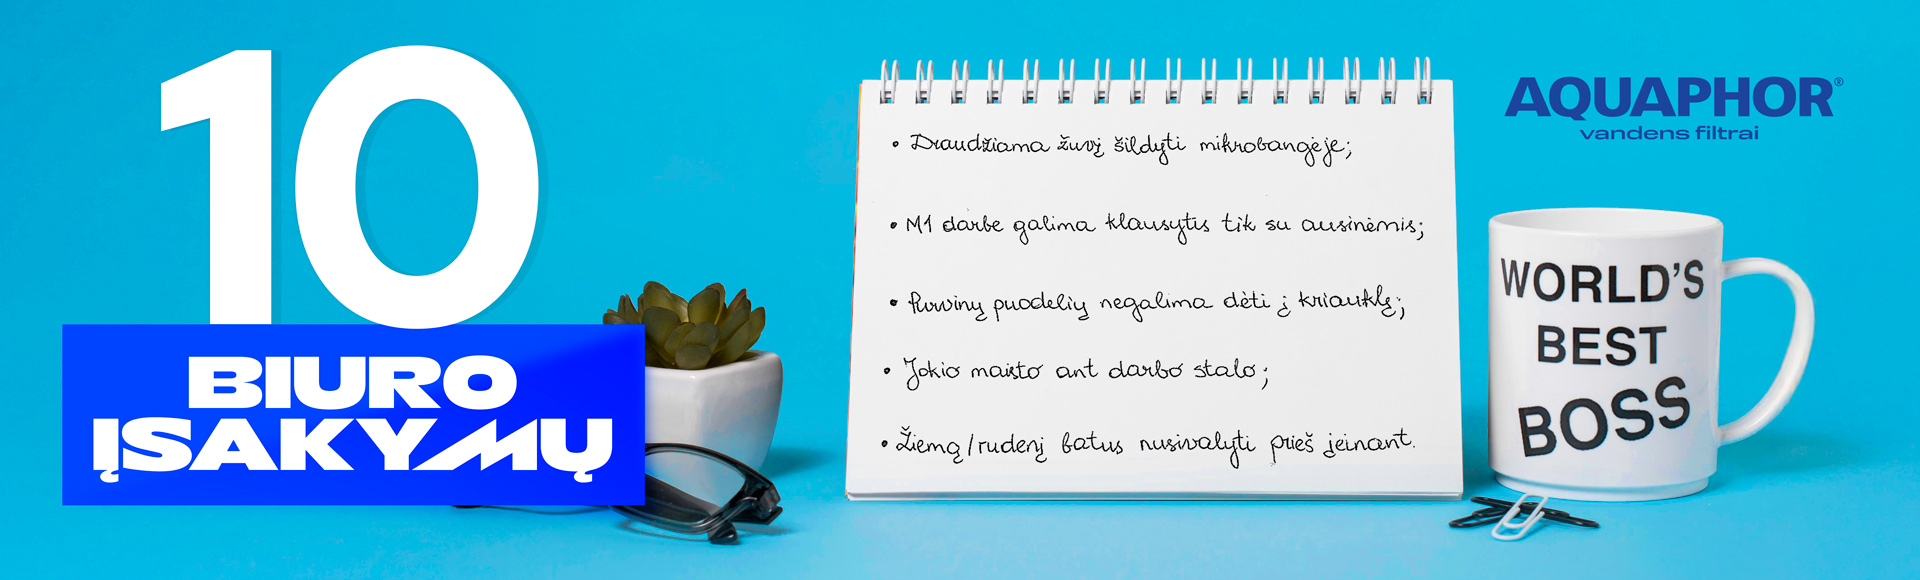 10
BIURO
ĮSAKYMŲ
• Draudžiama žuvį šildyti mikrobangėje;
• M1 darbe galima klausytis tik su ausinėmis;
• Purvinų puodelių negalima dėti į kriauklę;
• Jokio maisto ant darbo stalo;
• Žiemą/rudenį batus nusivalyti prieš įeinant.
AQUAPHOR®
vandens filtrai
WORLD'S
BEST
BOSS